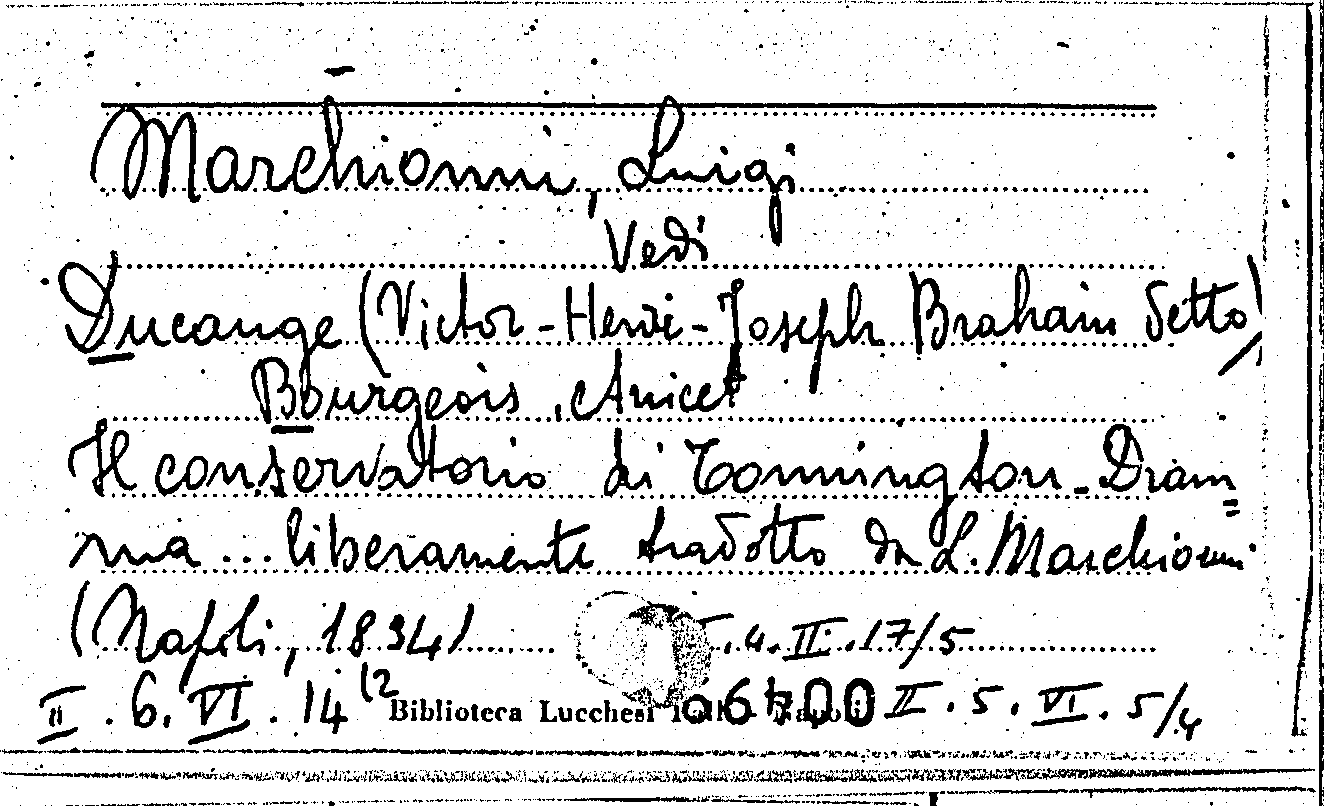 Marchionni, Luigi
Vedi
Ducange (Victor-Henri-Joseph Brahain detto)
Bourgeois, Anicet
Il conservatorio di Tonnington. Dram=
ma... liberamente tradotto da L. Marchionni
(Napoli, 1834) .4.II.17/5
II.6.VI.14(2 Biblioteca Lucchesi Napoli 06400 II.5.VI.5/4